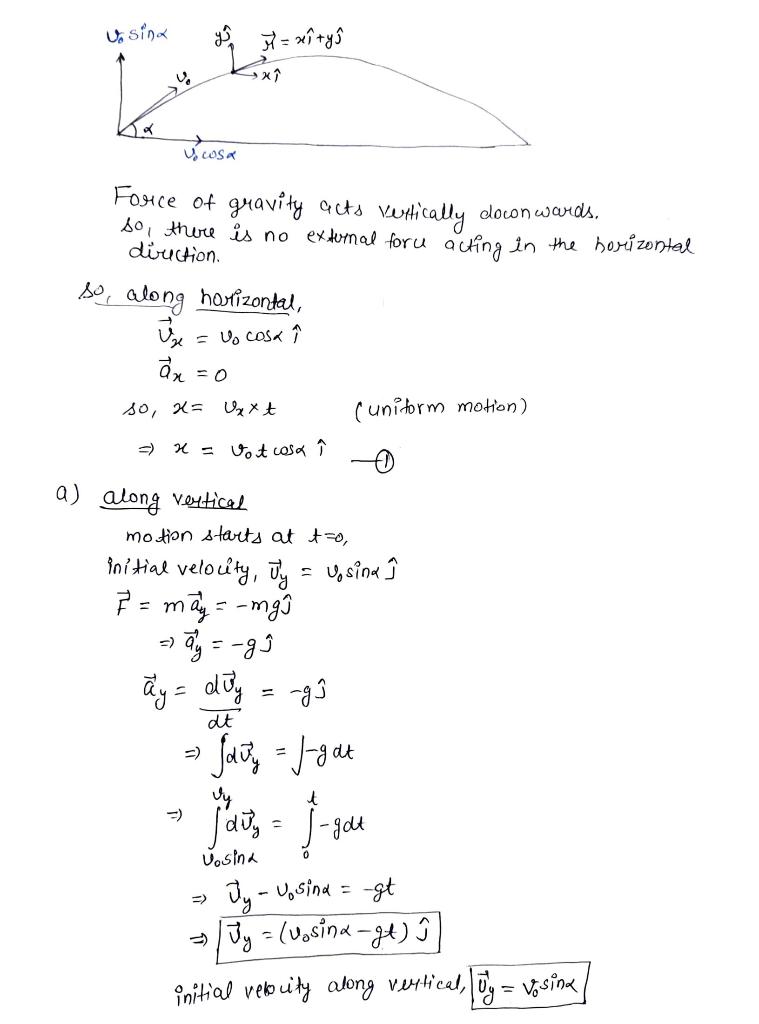 v₀ sinα
yĵ
r⃗ = xî+yĵ
xî
v₀
α
v₀ cosα
Force of gravity acts vertically downwards.
so, there is no external force acting in the horizontal
direction.
so, along horizontal,
v⃗ₓ = v₀ cosα î
a⃗ₓ = 0
so, x = vₓ × t (uniform motion)
⇒ x = v₀ t cosα î —①
a) along vertical
motion starts at t=0,
initial velocity, v⃗y = v₀ sinα ĵ
F⃗ = m a⃗y = -mgĵ
⇒ a⃗y = -g ĵ
a⃗y = dv⃗y/dt = -g ĵ
⇒ ∫dv⃗y = ∫-g dt
⇒ ∫_{v₀sinα}^{vy} dv⃗y = ∫_0^t -gdt
⇒ v⃗y - v₀ sinα = -gt
⇒ v⃗y = (v₀ sinα - gt) ĵ
initial velocity along vertical, v⃗y = v₀ sinα